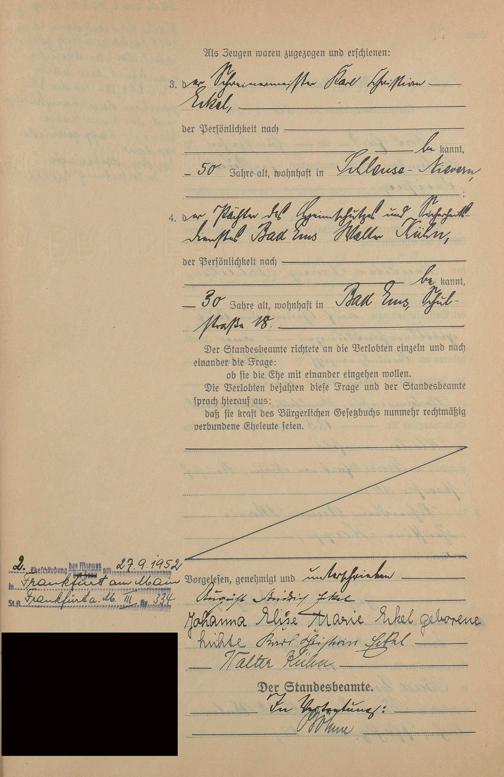 Als Zeugen waren zugezogen und erschienen:
3. der Schreinermeister Karl Christian
Eckel,
der Persönlichkeit nach
bekannt,
50 Jahre alt, wohnhaft in Schleuse-Nievern
4. der Wächter des Heimschutzes und Sicherheits
dienstes Bad Ems Walter Kühn,
der Persönlichkeit nach
bekannt,
30 Jahre alt, wohnhaft in Bad Ems, Schul-
straße 18.
Der Standesbeamte richtete an die Verlobten einzeln und nach
einander die Frage:
ob sie die Ehe mit einander eingehen wollen.
Die Verlobten bejahten diese Frage und der Standesbeamte
sprach hierauf aus:
daß sie kraft des Bürgerlichen Gesetzbuchs nunmehr rechtmäßig
verbundene Eheleute seien.
2. Eheschließung des Mannes am 27.9.1952
in Frankfurt am Main
St.A. Frankfurt a. M. III Nr. 334
Vorgelesen, genehmigt und unterschrieben
August Eckel
Johanna Elise Marie Eckel geborene
Karl Christian Eckel
Walter Kühn
Der Standesbeamte.
In Vertretung: